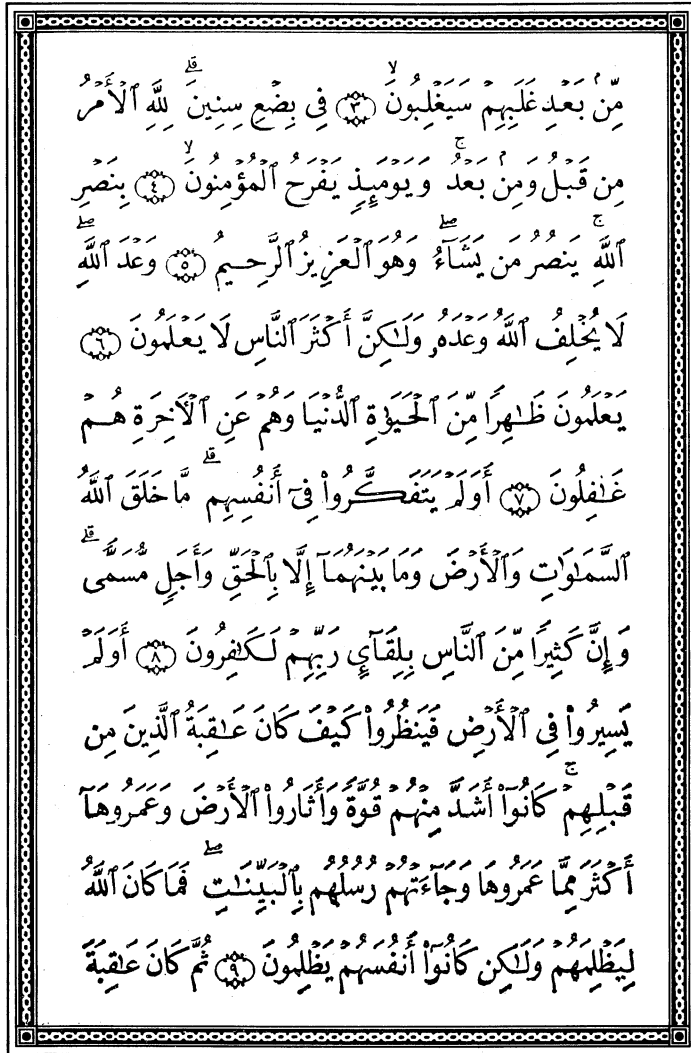 مِّنۢ بَعۡدِ غَلَبِهِمۡ سَيَغۡلِبُونَۙ ۝٣ فِي بِضۡعِ سِنِينَۗ لِلَّهِ ٱلۡأَمۡرُ
مِن قَبۡلُ وَمِنۢ بَعۡدُۚ وَيَوۡمَئِذٖ يَفۡرَحُ ٱلۡمُؤۡمِنُونَۙ ۝٤ بِنَصۡرِ
ٱللَّهِۚ يَنصُرُ مَن يَشَآءُۖ وَهُوَ ٱلۡعَزِيزُ ٱلرَّحِيمُ ۝٥ وَعۡدَ ٱللَّهِۖ
لَا يُخۡلِفُ ٱللَّهُ وَعۡدَهُۥ وَلَٰكِنَّ أَكۡثَرَ ٱلنَّاسِ لَا يَعۡلَمُونَ ۝٦
يَعۡلَمُونَ ظَٰهِرٗا مِّنَ ٱلۡحَيَوٰةِ ٱلدُّنۡيَا وَهُمۡ عَنِ ٱلۡأٓخِرَةِ هُمۡ
غَٰفِلُونَ ۝٧ أَوَلَمۡ يَتَفَكَّرُواْ فِيٓ أَنفُسِهِمۗ مَّا خَلَقَ ٱللَّهُ
ٱلسَّمَٰوَٰتِ وَٱلۡأَرۡضَ وَمَا بَيۡنَهُمَآ إِلَّا بِٱلۡحَقِّ وَأَجَلٖ مُّسَمّٗىۗ
وَإِنَّ كَثِيرٗا مِّنَ ٱلنَّاسِ بِلِقَآيِٕ رَبِّهِمۡ لَكَٰفِرُونَ ۝٨ أَوَلَمۡ
يَسِيرُواْ فِي ٱلۡأَرۡضِ فَيَنظُرُواْ كَيۡفَ كَانَ عَٰقِبَةُ ٱلَّذِينَ مِن
قَبۡلِهِمۡۚ كَانُوٓاْ أَشَدَّ مِنۡهُمۡ قُوَّةٗ وَأَثَارُواْ ٱلۡأَرۡضَ وَعَمَرُوهَآ
أَكۡثَرَ مِمَّا عَمَرُوهَا وَجَآءَتۡهُمۡ رُسُلُهُم بِٱلۡبَيِّنَٰتِۖ فَمَا كَانَ ٱللَّهُ
لِيَظۡلِمَهُمۡ وَلَٰكِن كَانُوٓاْ أَنفُسَهُمۡ يَظۡلِمُونَ ۝٩ ثُمَّ كَانَ عَٰقِبَةَ